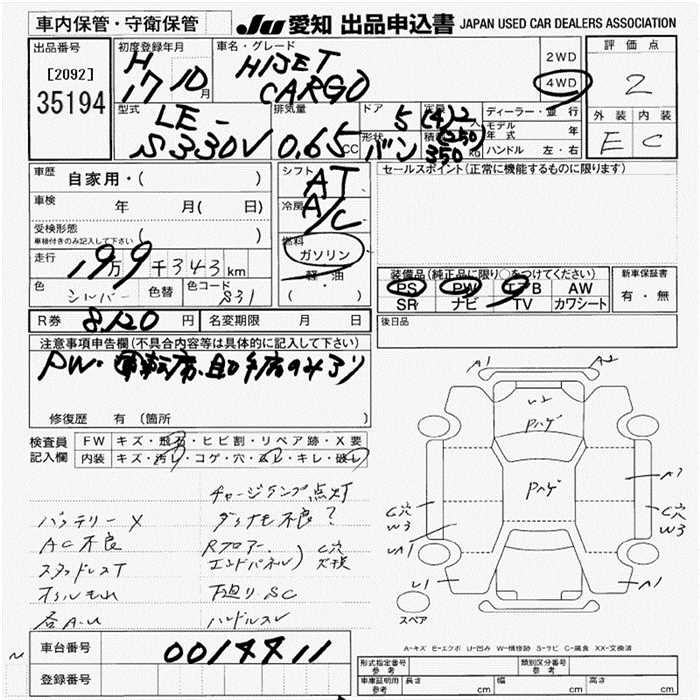 車内保管・守衛保管
JU 愛知 出品申込書 JAPAN USED CAR DEALERS ASSOCIATION
出品番号
[2092]
35194
初度登録年月
H 17 10月
車名・グレード
HIJET
CARGO
2WD
4WD
評価点
2
外装 内装
E C
型式
LE-
S330V
排気量
0.65 CC
ドア
5
定員
(4)2人
形状
バン
積載
(250)
350 kg
ディーラー・並行
モデル年式 年
ハンドル 左・右
車歴
自家用・( )
車検 年 月( 日)
受検形態
車検付きのみ記入して下さい ( )
走行
19万9千343km
色 シルバー 色替 色コード S31
シフト
AT
冷房
A/C
燃料
ガソリン
軽・油
( )
セールスポイント(正常に機能するものに限ります)
装備品(純正品に限り○をつけてください)
PS PW エアB AW
SR ナビ TV カワシート
新車保証書
有・無
R券 8,120円 名変期限 月 日
後日品
注意事項申告欄(不具合内容等は具体的に記入して下さい)
PW・運転席、助手席のみあり
修復歴 有(箇所 )
検査員
記入欄
FW キズ・飛石・ヒビ割・リペア跡・X要
内装 キズ・汚レ・コゲ・穴・スレ・キレ・破レ
チャージランプ点灯
バッテリーX ダイナモ不良?
AC不良 Rフロアー
スタッドレスT エンドパネル) C穴
下廻りSC
各A・U ハンドルスレ
A1 A2
U2
Pハゲ
Pハゲ
C穴
W3
A2
C穴
W3
UA1
U1 A1
スペア
A-キズ E-エクボ U-凹み W-補修跡 S-サビ C-腐食 XX-交換済
車台番号
0014411
登録番号
形式指定番号 参考
類別区分番号 参考
車庫証明用 参考 長さ cm 幅 cm 高さ cm